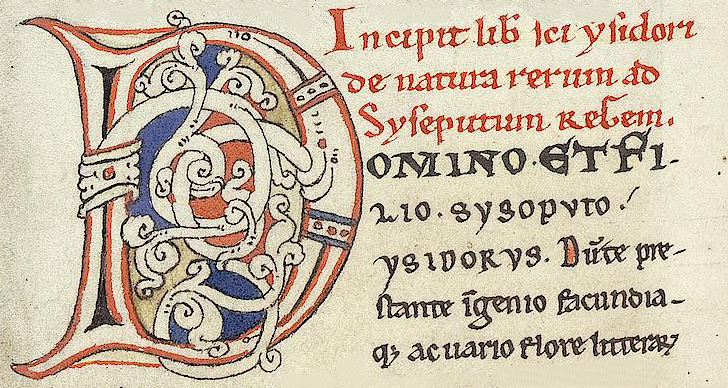 Incipit lib sci ysidori
de natura rerum ad
Syseputum Regem.
DOMINO·ET FI-
LIO. sysoputo.
ysidorvs. Dūte pre-
stante īgenio facundia-
qꝫ ac uario flore litteraꝝ